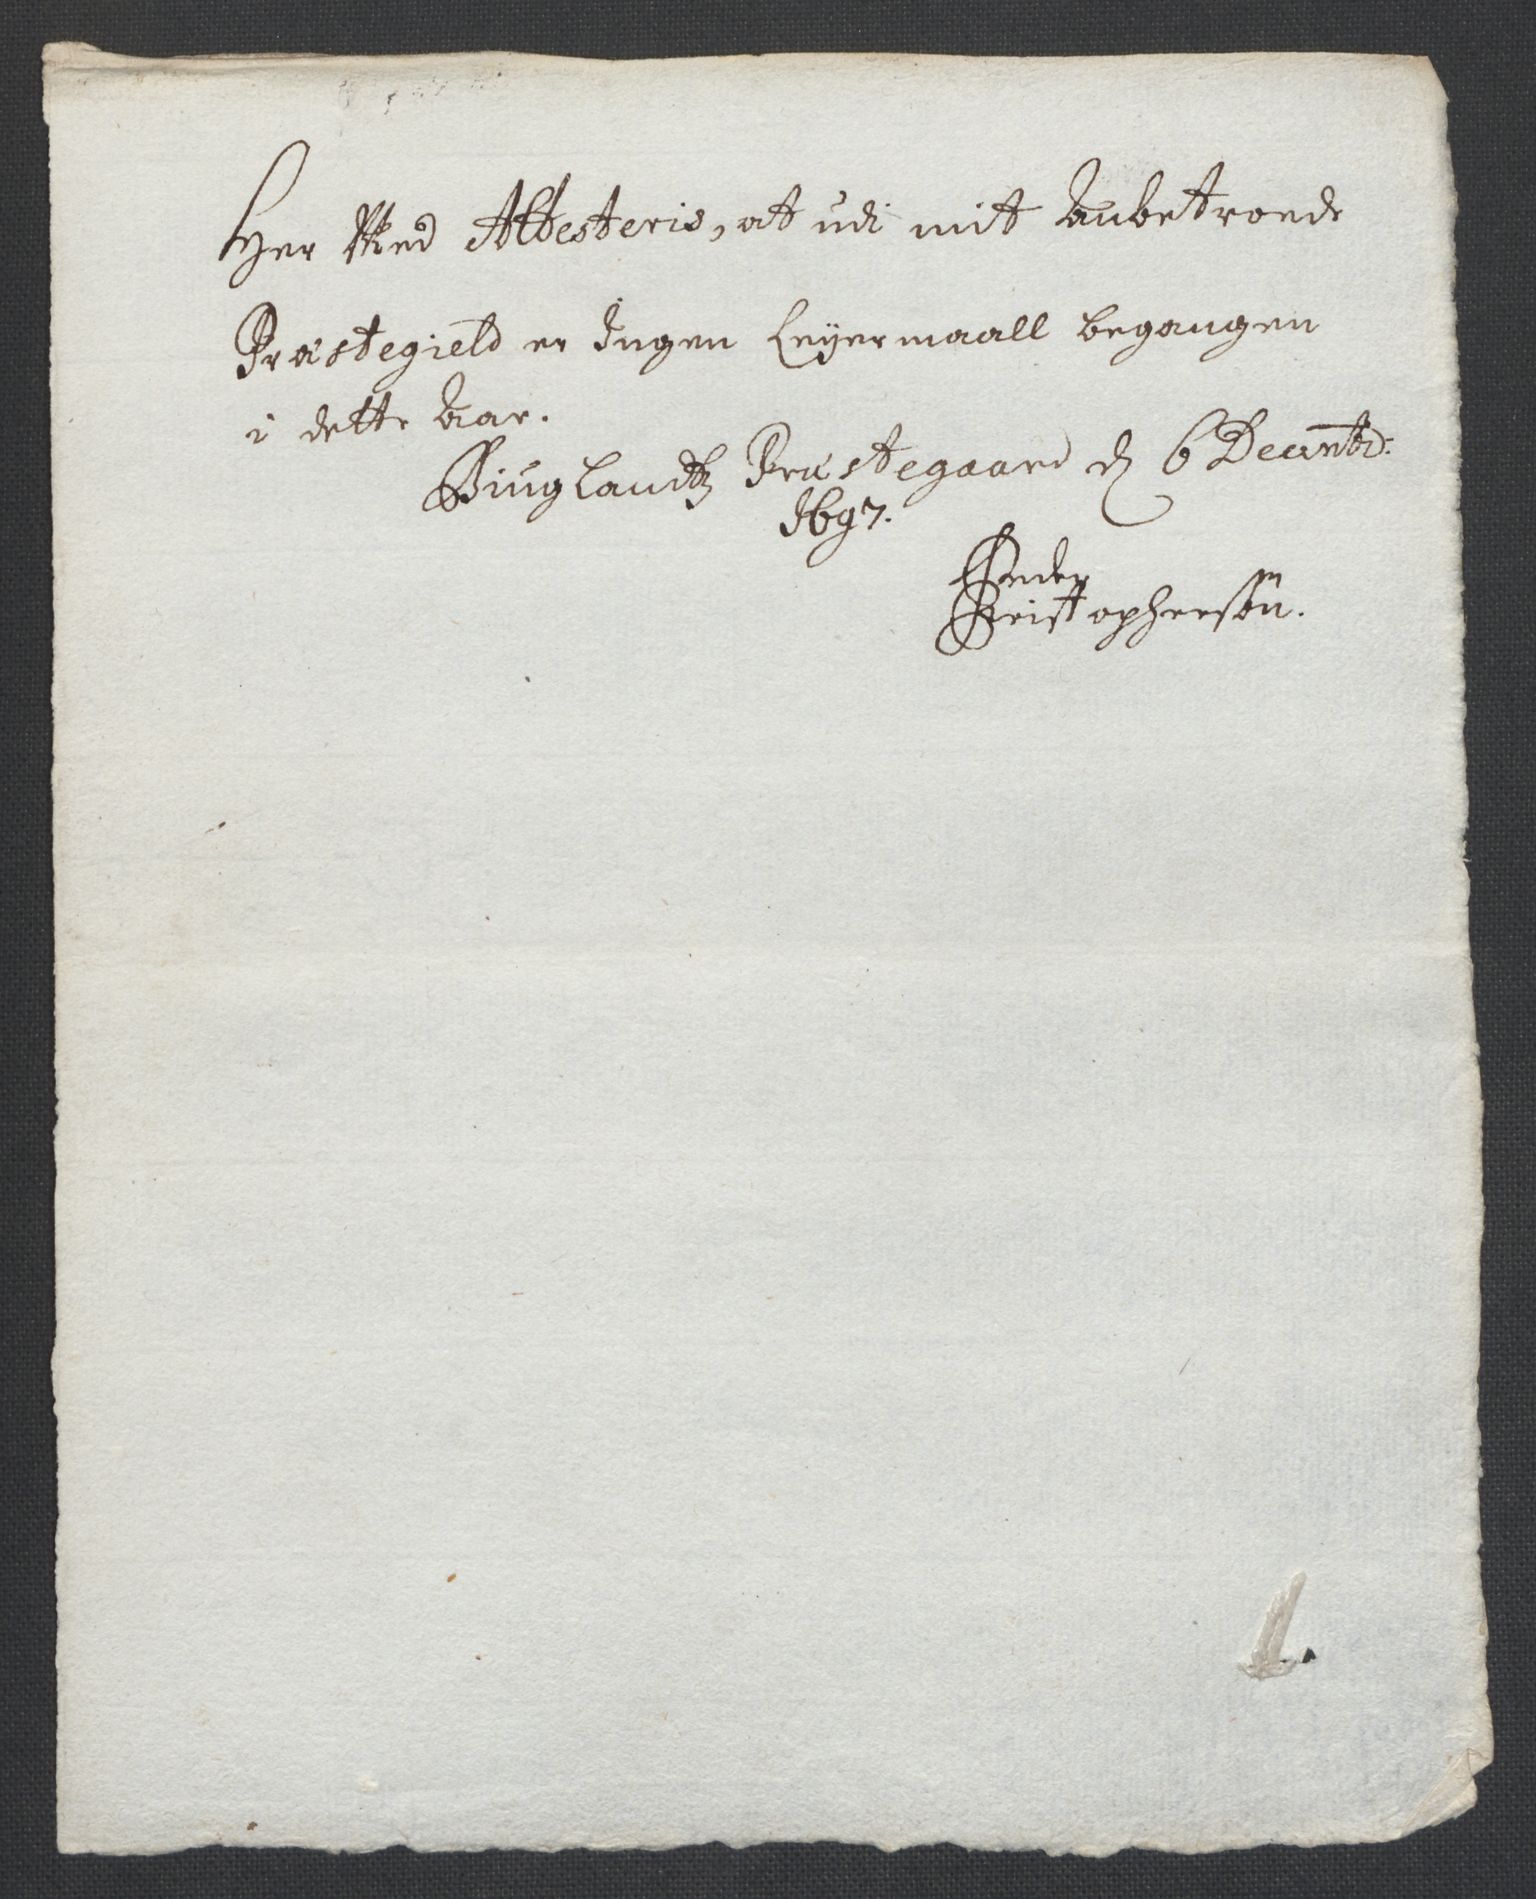 Her Med Attesteris, at udi mit anbetroede
Præstegield er Ingen Leyermaall begangen
i dette Aar.
Biuglandtz Præstegaard d 6 Decembr:
1697.
Peder
Christophersøn.